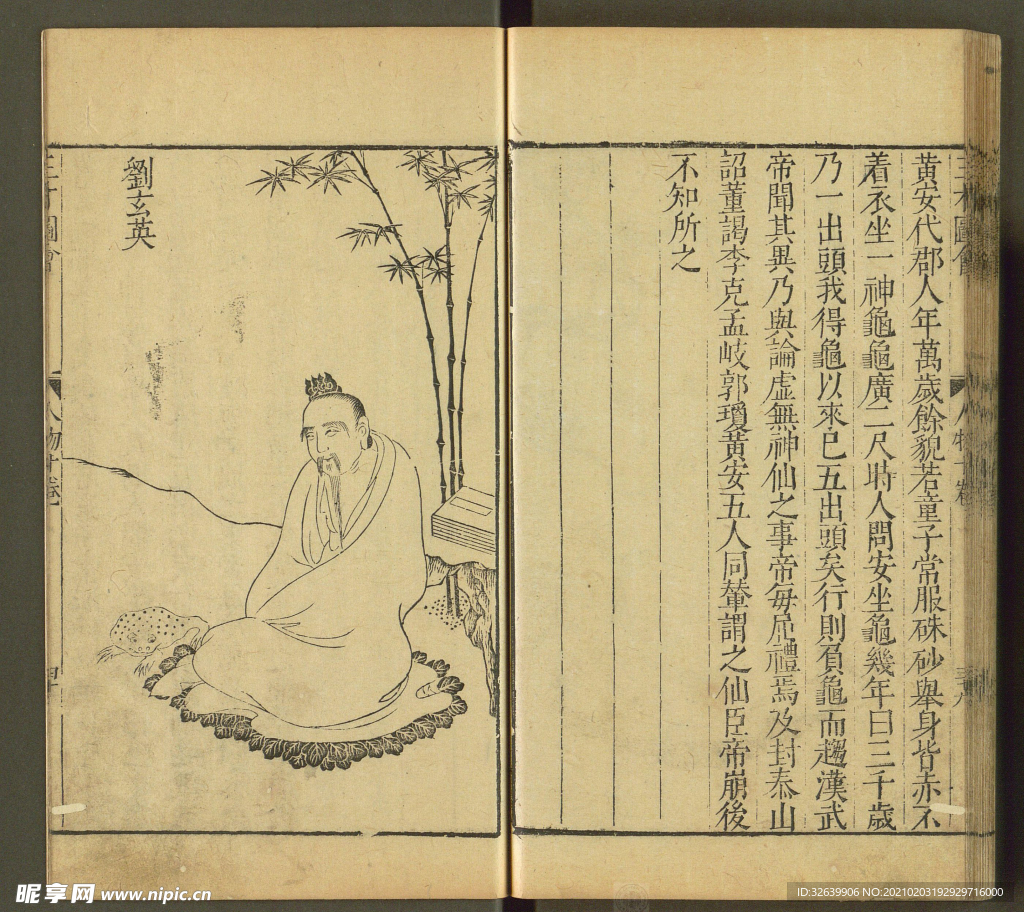 三才圖會
人物十卷
三十九
黃安代郡人年萬歲餘貌若童子常服硃砂舉身皆赤不
着衣坐一神龜龜廣二尺時人問安坐龜幾年曰三千歲
乃一出頭我得龜以來已五出頭矣行則負龜而趨漢武
帝聞其異乃與論虛無神仙之事帝每屈禮焉及封泰山
詔董謁李克孟岐郭瓊黃安五人同輦謂之仙臣帝崩後
不知所之
劉玄英
三才圖會
人物十卷
四十
昵享网 www.nipic.cn
ID:32639906 NO:20210203192929716000